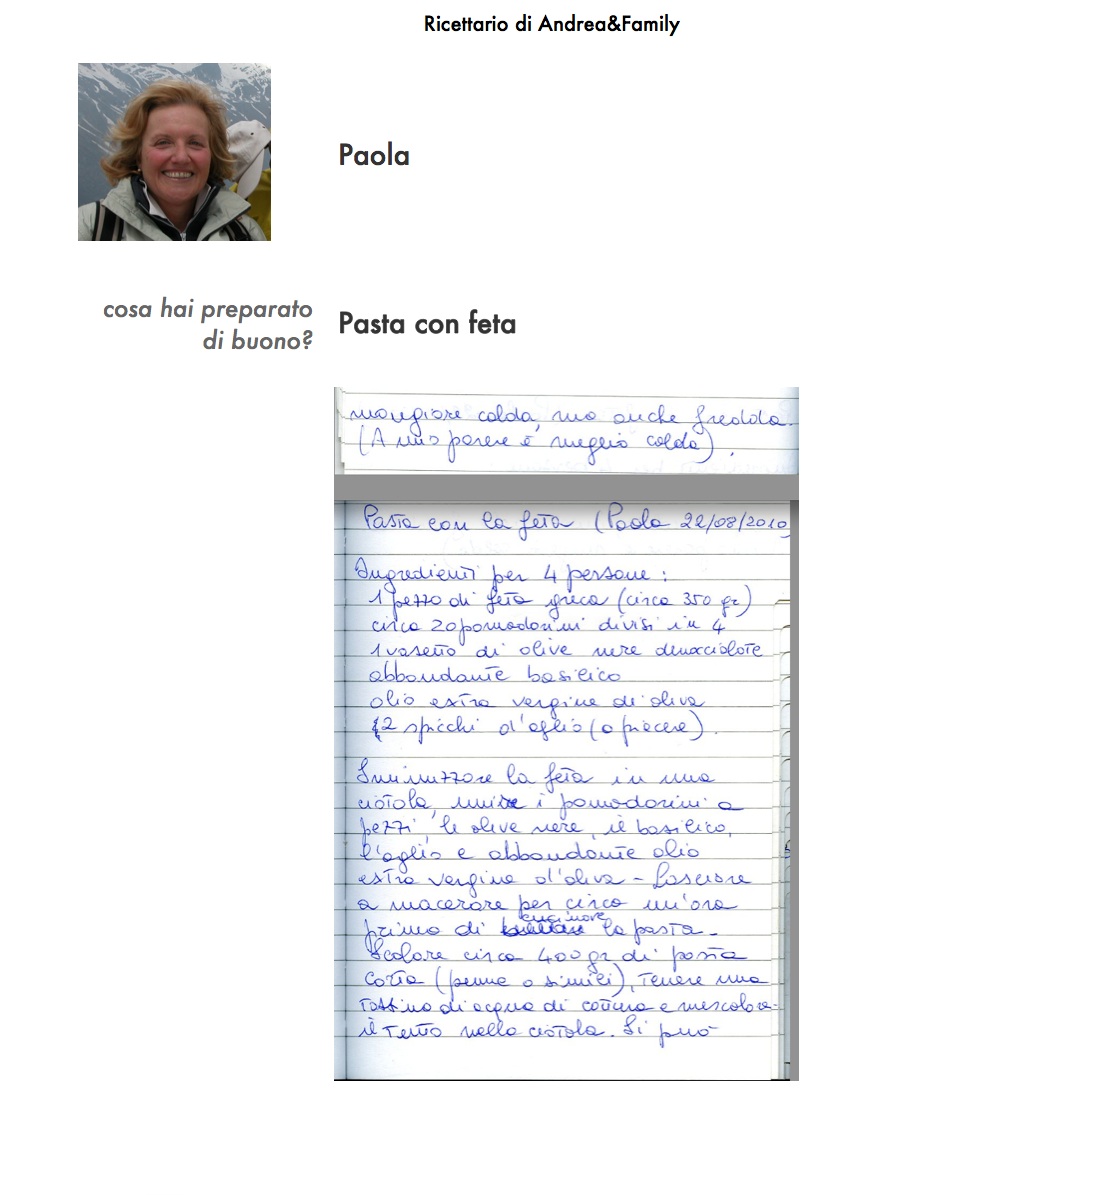 Ricettario di Andrea&Family
Paola
cosa hai preparato
di buono?
Pasta con feta
mangiare calda, ma anche fredda.
(A mio parere è meglio calda).
Pasta con la feta (Paola 22/08/2010)
Ingredienti per 4 persone:
1 pezzo di feta greca (circa 350 gr)
circa 20 pomodorini divisi in 4
1 vasetto di olive nere denocciolate
abbondante basilico
olio extra vergine di oliva
2 spicchi d'aglio (a piacere).
Sminuzzare la feta in una
ciotola, unire i pomodorini a
pezzi, le olive nere, il basilico,
l'aglio e abbondante olio
extra vergine d'oliva - Lasciare
a macerare per circa un'ora
prima di cucinare la pasta.
Scolare circa 400 gr di pasta
corta (penne o simili), tenere una
tazzina di acqua di cottura e mescolare
il tutto nella ciotola. Si può